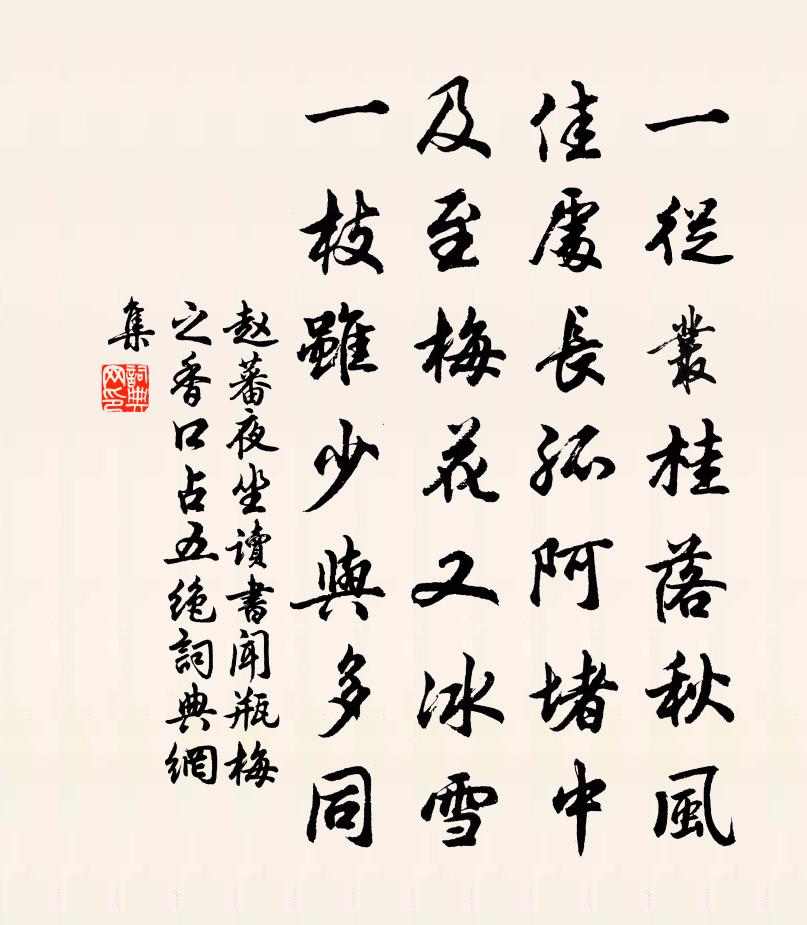 一從叢桂落秋風
佳處長孤阿堵中
及至梅花又冰雪
一枝雖少與多同
赵蕃夜坐讀書聞瓶梅
之香口占五絶詞典網
集
詞典
网印